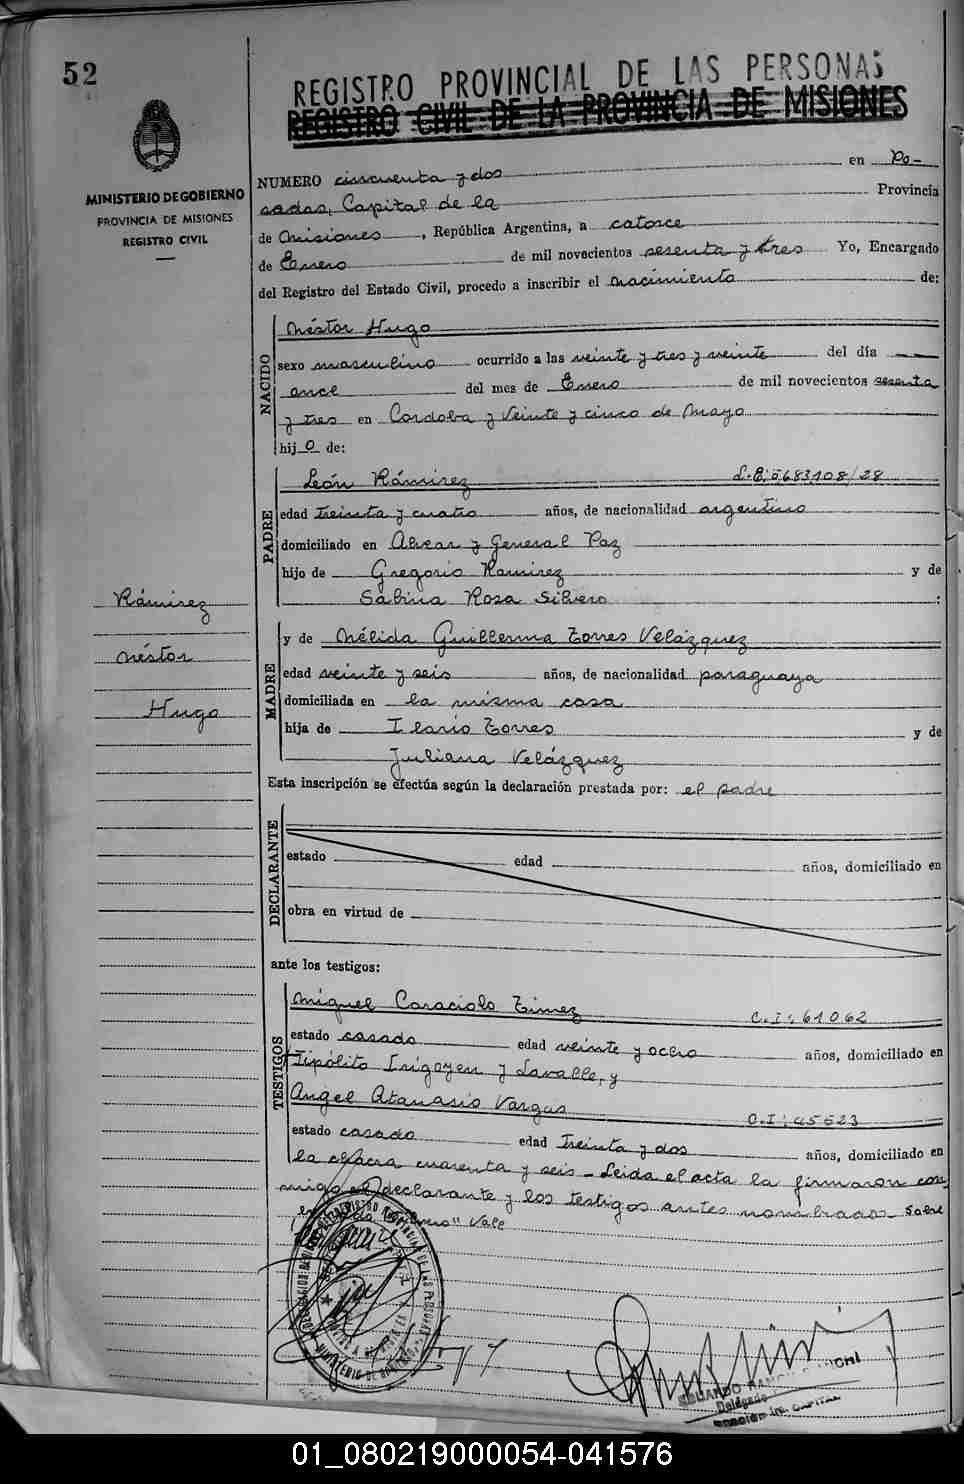 52
REGISTRO PROVINCIAL DE LAS PERSONAS
REGISTRO CIVIL DE LA PROVINCIA DE MISIONES
MINISTERIO DE GOBIERNO
PROVINCIA DE MISIONES
REGISTRO CIVIL
NUMERO cincuenta y dos en Po-
sadas, Capital de la Provincia
de Misiones, República Argentina, a catorce
de Enero de mil novecientos sesenta y tres Yo, Encargado
del Registro del Estado Civil, procedo a inscribir el nacimiento de:
NACIDO
Néstor Hugo
sexo masculino ocurrido a las veinte y tres y veinte del día
once del mes de Enero de mil novecientos sesenta
y tres en Cordoba y Veinte y cinco de Mayo
hijo de:
PADRE
León Rámirez L.E: 5683108/28
edad treinta y cuatro años, de nacionalidad argentino
domiciliado en Alvear y General Paz
hijo de Gregorio Ramirez y de
Sabina Rosa Silvero :
Rámirez
Néstor
Hugo
MADRE
y de Nélida Guillerma Torres Velázquez
edad veinte y seis años, de nacionalidad paraguaya
domiciliada en la misma casa
hija de Ilario Torres y de
Juliana Velázquez
Esta inscripción se efectúa según la declaración prestada por: el padre
DECLARANTE
estado edad años, domiciliado en
obra en virtud de
ante los testigos:
TESTIGOS
Miguel Caraciolo Timez C.I: 61062
estado casado edad veinte y ocho años, domiciliado en
Hipólito Irigoyen y Lavalle, y
Angel Atanasio Vargas C.I: 45523
estado casado edad treinta y dos años, domiciliado en
la chacra cuarenta y seis - Leida el acta la firmaron con-
migo el declarante y los testigos antes nombrados - Sobre
Vale
Delegado
CAPITAL
01_080219000054-041576